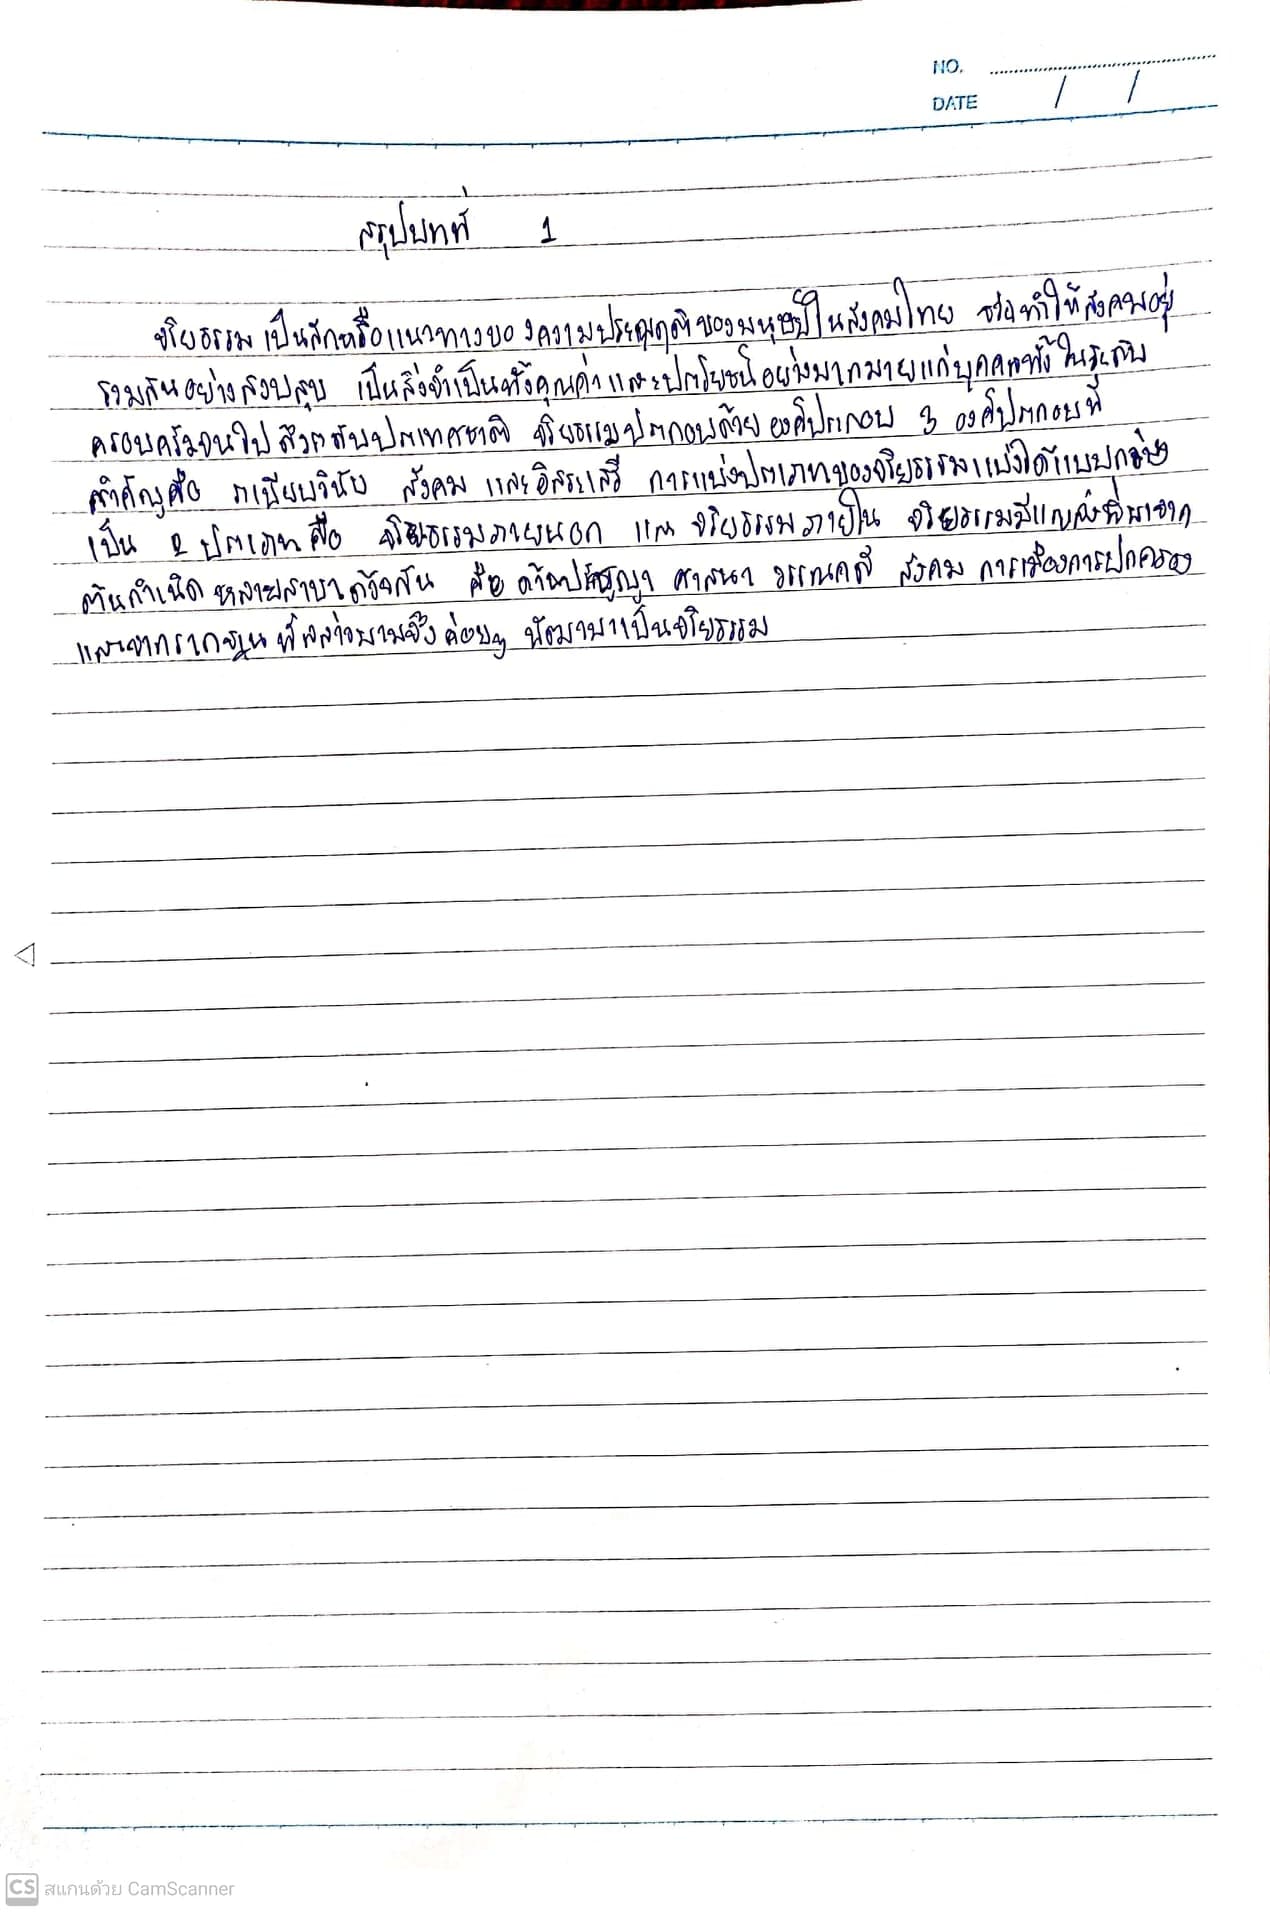 NO.
DATE / /
สรุปบทที่ 1
จริยธรรมเป็นหลักหรือแนวทางของความประพฤติของมนุษย์ในสังคมไทย ช่วยทำให้สังคมอยู่
รวมกันอย่างสงบสุข เป็นสิ่งจำเป็นทั้งคุณค่าและประโยชน์อย่างมากมายแก่บุคคลทั้งในระดับ
ครอบครัวจนไปถึงระดับประเทศชาติ จริยธรรมประกอบด้วยองค์ประกอบ 3 องค์ประกอบที่
สำคัญคือ ระเบียบวินัย สังคม และอิสระเสรี การแบ่งประเภทของจริยธรรมแบ่งได้แบบกว้าง
เป็น 2 ประเภท คือ จริยธรรมภายนอก และ จริยธรรมภายใน จริยธรรมมีแหล่งที่มาจาก
ต้นกำเนิดหลายสาขาด้วยกัน คือ ด้านปรัชญา ศาสนา วรรณคดี สังคม การเมืองการปกครอง
และจากรากฐานที่กล่าวมานี้จึงค่อยๆ พัฒนามาเป็นจริยธรรม
CS สแกนด้วย CamScanner